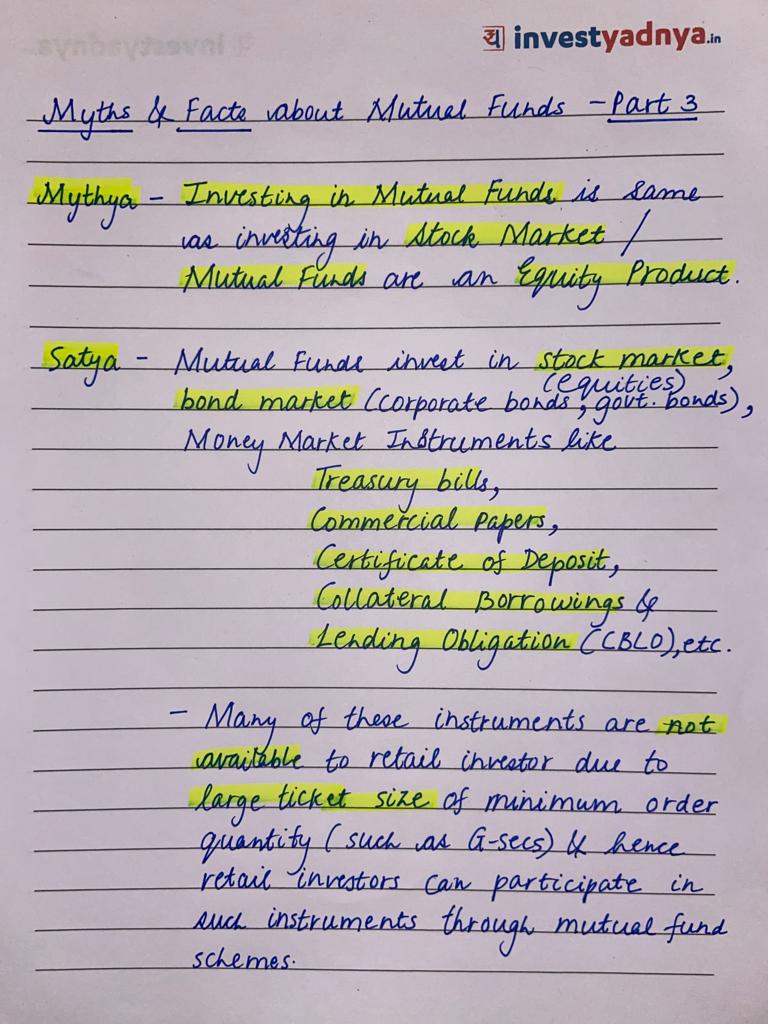 य investyadnya.in
Myths & Facts about Mutual Funds - Part 3
Mythya - Investing in Mutual Funds is same
as investing in Stock Market /
Mutual Funds are an Equity Product.
Satya - Mutual Funds invest in stock market,
(equities)
bond market (corporate bonds, govt. bonds),
Money Market Instruments like
Treasury bills,
Commercial Papers,
Certificate of Deposit,
Collateral Borrowings &
Lending Obligation (CBLO), etc.
- Many of these instruments are not
available to retail investor due to
large ticket size of minimum order
quantity (such as G-secs) & hence
retail investors can participate in
such instruments through mutual fund
schemes.